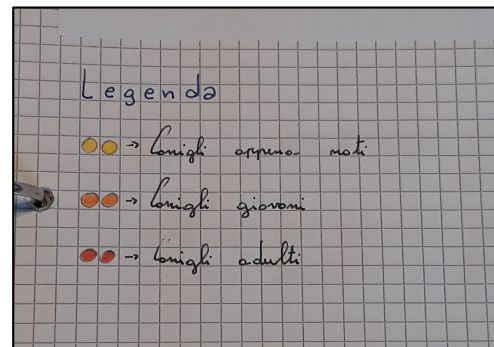 Legenda
→ Conigli appena nati
→ Conigli giovani
→ Conigli adulti